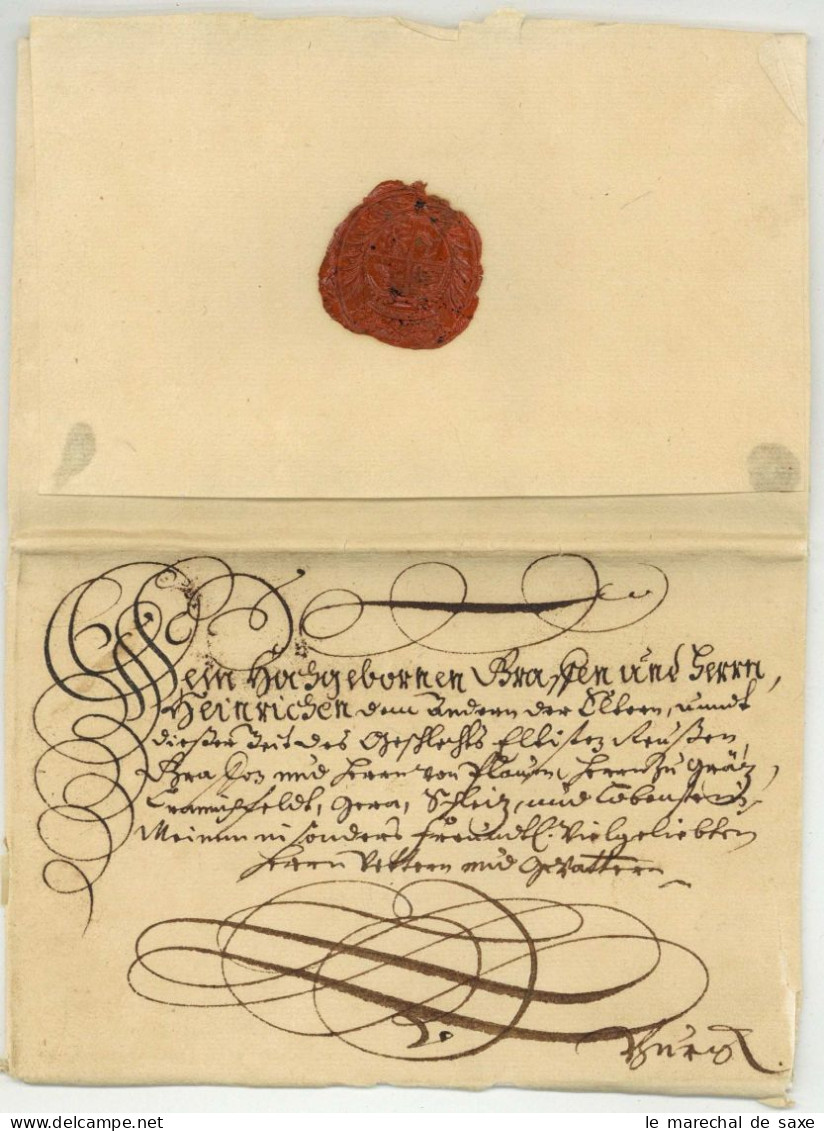 Dem Hochgebornen Graffen und Herrn,
Heinrichen dem Andern der Eltern, undt
dießer Zeit des Geschlechts Eltisten Reußen,
Graffen und Herrn von Plauen, Herrn zu Gräiz,
Crannichfeldt, Gera, Schleiz, und Lobenstein,
Meinem insonders freundtl. Vielgeliebten
Herrn Vettern und Gevattern
Burgk.
le marechal de saxe